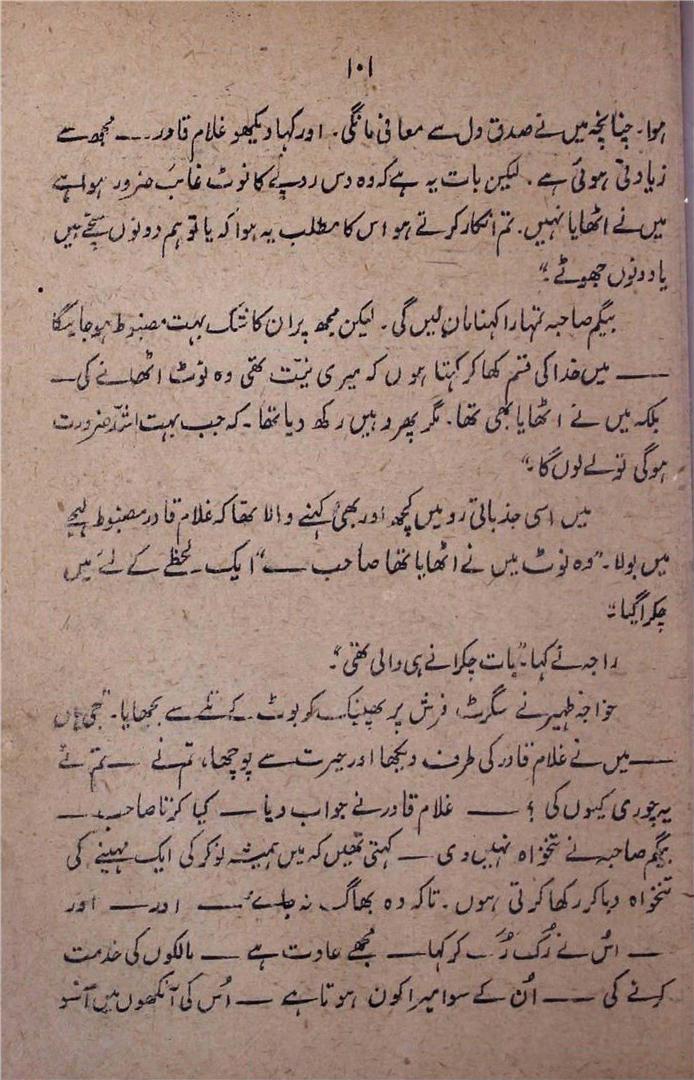 ۱۰۱
ہوا۔ چنانچہ میں نے صدق دل سے معافی مانگی۔ اور کہا دیکھو غلام قادر ــــ مجھ سے
زیادتی ہوئی ہے۔ لیکن بات یہ ہے کہ وہ دس روپے کا نوٹ غائب ضرور ہوا ہے
میں نے اٹھایا نہیں۔ تم انکار کرتے ہو اس کا مطلب یہ ہوا کہ یا تو ہم دونوں سچے ہیں
یا دونوں جھوٹے۔"
بیگم صاحبہ تمہارا کہنا مان لیں گی۔ لیکن مجھ پر ان کا شک بہت مضبوط ہو جائیگا
ــــ میں خدا کی قسم کھا کر کہتا ہوں کہ میری نیت تھی وہ نوٹ اٹھانے کی ــــ
بلکہ میں نے اٹھایا بھی تھا۔ مگر پھر وہیں رکھ دیا تھا۔ کہ جب بہت اشد ضرورت
ہوگی تو لے لوں گا۔"
میں اسی جذباتی رو میں کچھ اور بھی کہنے والا تھا کہ غلام قادر مضبوط لہجے
میں بولا۔ "وہ نوٹ میں نے اٹھایا تھا صاحب ــــ" ایک لحظے کے لئے میں
چکرا گیا۔"
راجہ نے کہا "بات چکرانے ہی والی تھی"۔
خواجہ ظہیر نے سگرٹ فرش پر پھینک کر بوٹ کے تلے سے بجھایا۔ "جی ہاں
ــــ میں نے غلام قادر کی طرف دیکھا اور حیرت سے پوچھا، تم نے ــــ تم نے
یہ چوری کیوں کی؟ ــــ غلام قادر نے جواب دیا ــــ کیا کرتا صاحب ــــ
بیگم صاحبہ نے تنخواہ نہیں دی ــــ کہتی تھیں کہ میں ہمیشہ نوکر کی ایک مہینے کی
تنخواہ دبا کر رکھا کرتی ہوں۔ تاکہ وہ بھاگ نہ جائے ــــ اور ــــ اور
ــــ اُس نے رُک رُک کر کہا ــــ مجھے عادت ہے ــــ مالکوں کی خدمت
کرنے کی ــــ اُن کے سوا میرا کون ہوتا ہے ــــ اُس کی آنکھوں میں آنسو